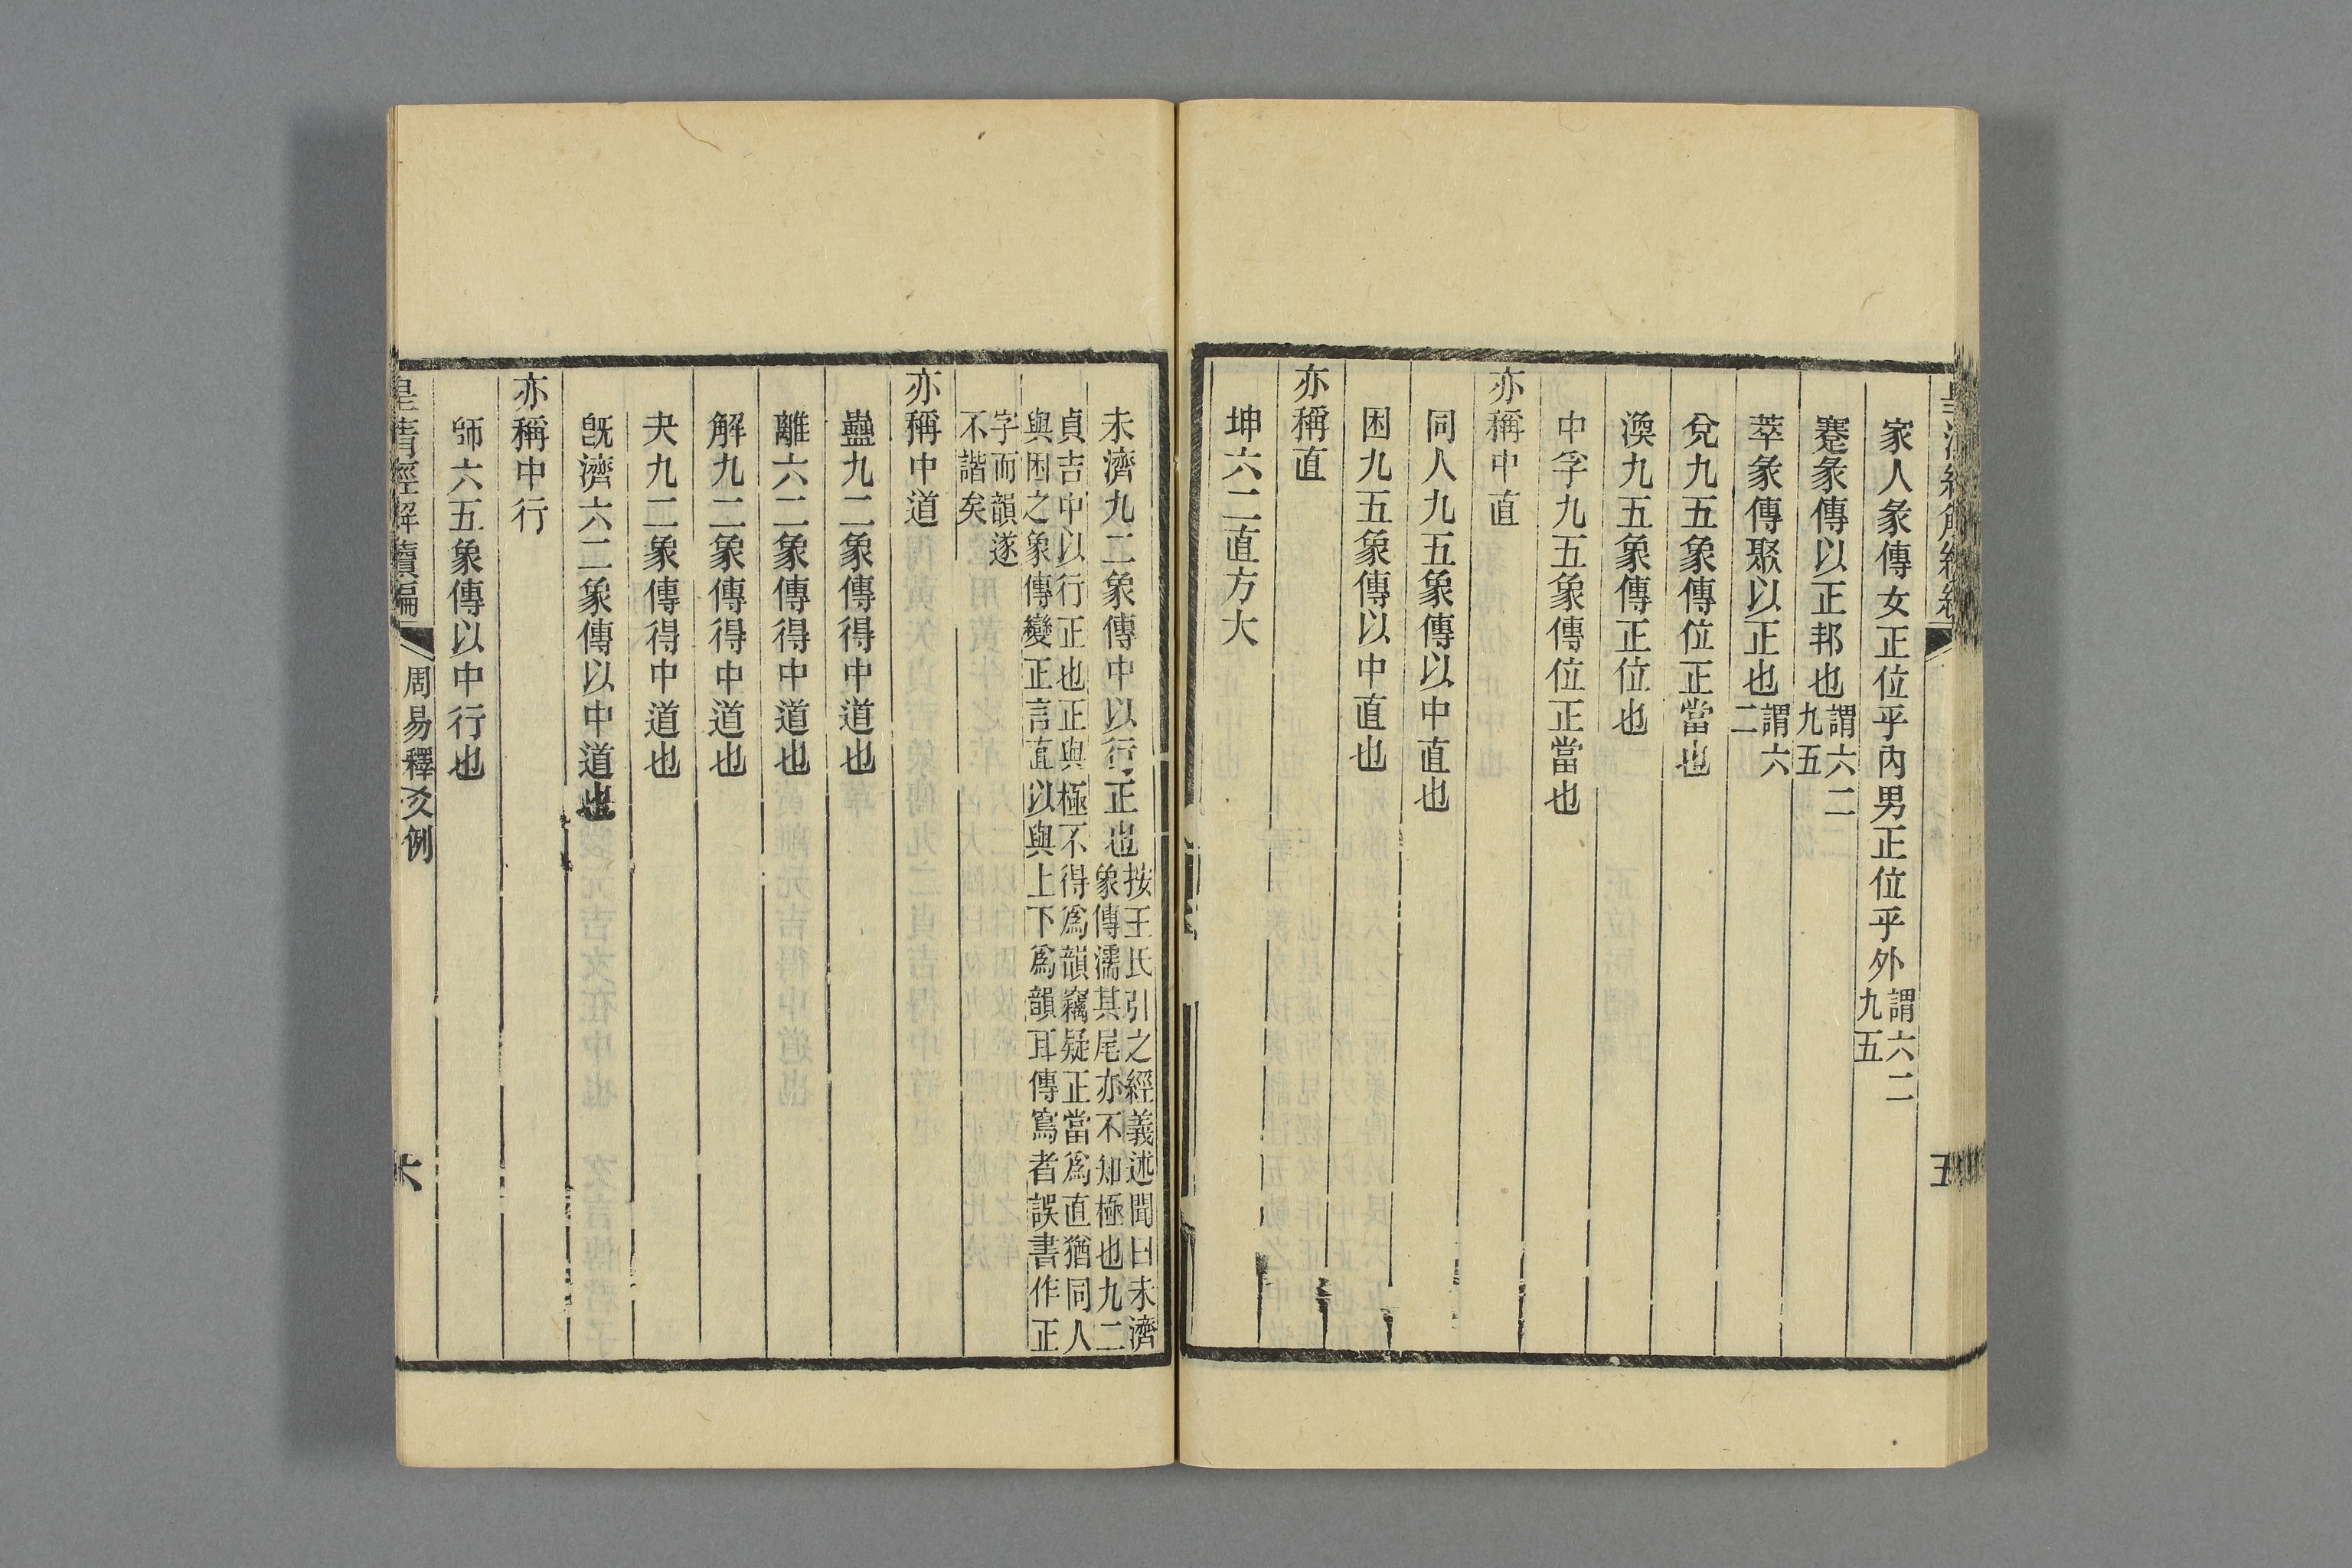 家人彖傳女正位乎內男正位乎外謂六二九五
蹇彖傳以正邦也謂六二九五
萃彖傳聚以正也謂六二
兌九五象傳位正當也
渙九五象傳正位也
中孚九五象傳位正當也
亦稱中直
同人九五象傳以中直也
困九五象傳以中直也
亦稱直
坤六二直方大
未濟九二象傳中以行正也按王氏引之經義述聞曰未濟
象傳濡其尾亦不知極也九二
貞吉中以行正也正與極不得爲韻竊疑正當爲直猶同人
與困之象傳變正言直以與上下爲韻耳傳寫者誤書作正
字而韻遂
不諧矣
亦稱中道
蠱九二象傳得中道也
離六二象傳得中道也
解九二象傳得中道也
夬九二象傳得中道也
旣濟六二象傳以中道也
亦稱中行
師六五象傳以中行也
皇清經解續編
周易釋爻例
六
五